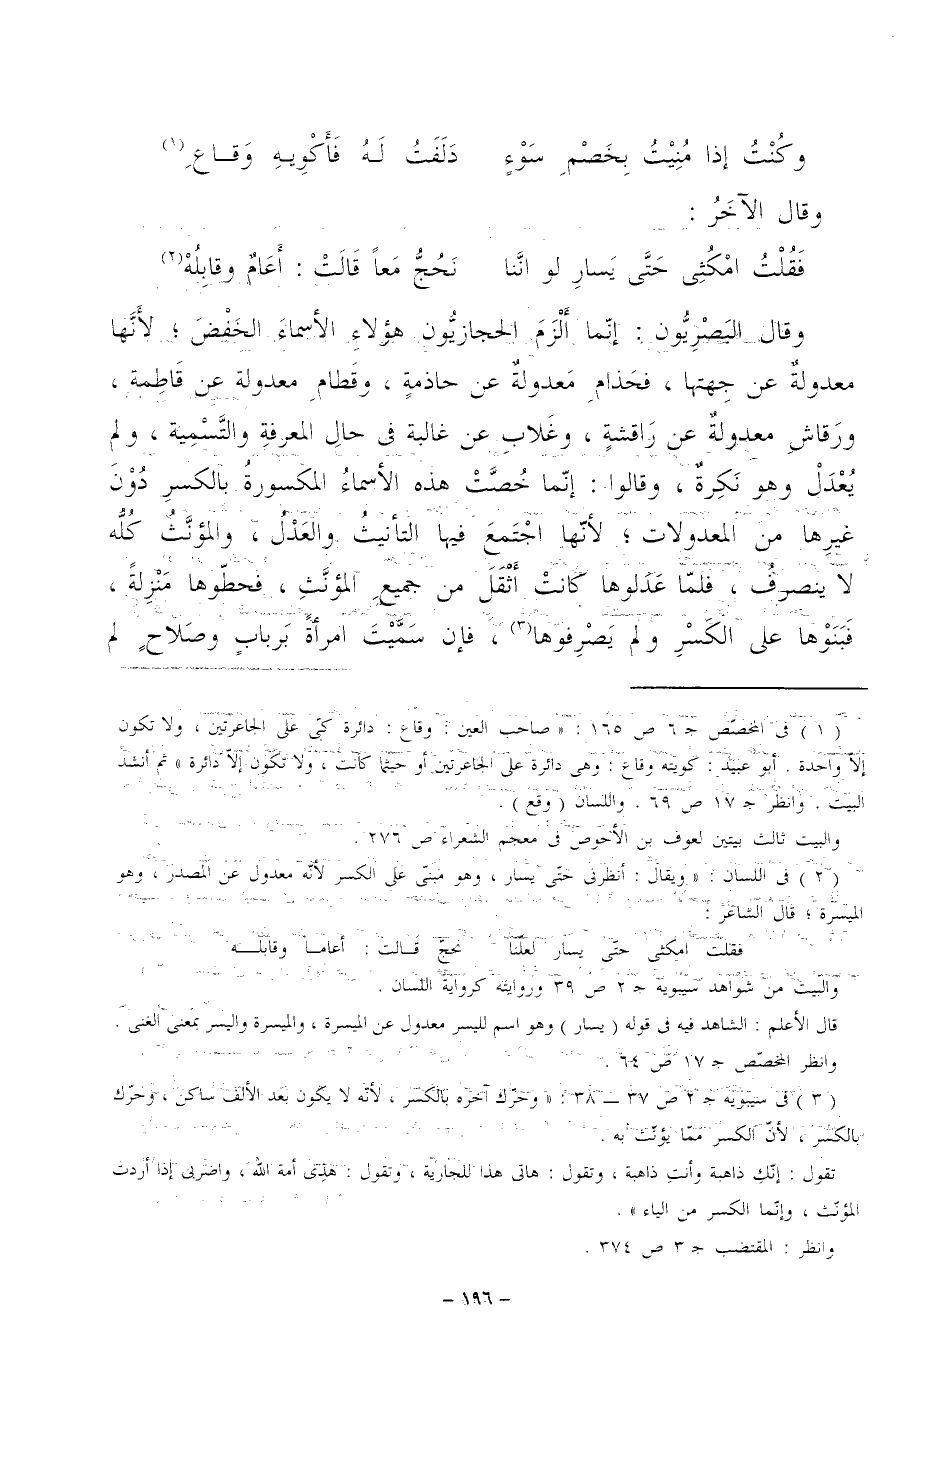 وكُنْتُ إذا مُنِيْتُ بِخَصْمِ سَوْءٍ دَلَفَتُ لَهُ فَأَكْوِيهِ وَقاعِ(١)
وقال الآخَرُ :
فَقُلْتُ امْكُثِى حَتَّى يَسارِ لو انَّنا نَحُجُّ مَعاً قَالَتْ : أَعَامٌ وقابِلُهْ(٢)
وقال البَصْرِيُّون : إنّما أَلْزَمَ الحجازيُّون هؤلاء الأسماءَ الخَفْضَ ؛ لأَنَّها
معدولةٌ عن جِهتِها ، فحَذامِ مَعدولةٌ عن حاذمةٍ ، وقَطامِ معدولة عن قاطِمة ،
ورَقاشِ معدولةٌ عن رَاقشةٍ ، وغَلابِ عن غالبة فى حالِ المعرفةِ والتَّسْمِية ، ولم
يُعْدَلْ وهو نَكِرةٌ ، وقالوا : إنّما خُصتَّ هذه الأسماءُ المكسورةُ بالكسرِ دُوْنَ
غيرِها من المعدولات ؛ لأنّها اجْتمَعَ فيها التأنيثُ والعَدْلُ ، والمؤنَّثُ كلُّه
لا ينصرفُ ، فلمّا عَدَلوها كَانتْ أَثْقَلَ من جميعِ المؤنَّثِ ، فحطّوها مَنْزِلةً ،
فَبَنَوْها على الكَسْرِ ولم يَصْرِفوها(٣) ، فإن سَمَّيْتَ امرأةً بَربابٍ وصَلاحٍ لم
( ١ ) فى المخصّص جـ ٦ ص ١٦٥ : « صاحب العين : وقاع : دائرة كىّ على الجاعرتين ، ولا تكون
إلاّ واحدة . أبو عبيد : كويته وقاع : وهى دائرة على الجاعرتين أو حيثما كانت ، ولا تكون إلاّ دائرة » ثم أنشد
البيت . وانظر جـ ١٧ ص ٦٩ . واللسان ( وقع ) .
والبيت ثالث بيتين لعوف بن الأحوص فى معجم الشعراء ص ٢٧٦ .
( ٢ ) فى اللسان : « ويقال : أنظرنى حتّى يسار ، وهو مبنّى على الكسر لأنّه معدول عن المصدر ، وهو
الميسرة ؛ قال الشاعر :
فقلت امكثى حتّى يسار لعلّنا نحجّ قالت : أعاماً وقابله
والبيت من شواهد سيبويه جـ ٢ ص ٣٩ وروايته كرواية اللسان .
قال الأعلم : الشاهد فيه فى قوله ( يسار ) وهو اسم لليسر معدول عن الميسرة ، والميسرة واليسر بمعنى الغنى .
وانظر المخصّص جـ ١٧ ص ٦٤ .
( ٣ ) فى سيبويه جـ ٢ ص ٣٧ ــ ٣٨ : « وحرّك آخره بالكسر ، لأنّه لا يكون بعد الألف ساكن ، وحرّك
بالكسر ، لأنّ الكسر ممّا يؤنّث به .
تقول : إنّكِ ذاهبة وأنتِ ذاهبة ، وتقول : هاتى هذا للجارية ، وتقول : هذى أمة الله ، واضربى إذا أردت
المؤنّث ، وإنّما الكسر من الياء » .
وانظر : المقتضب جـ ٣ ص ٣٧٤ .
– ١٩٦ –